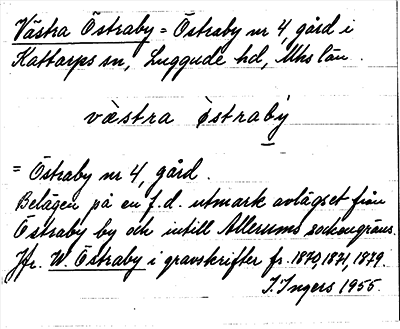 Västra Östraby = Östraby nr 4, gård i
Kattarps sn, Luggude hd, Mhs län.
vȁstra ȍstraby
= Östraby nr 4, gård.
Belägen på en f.d. utmark avlägset från
Östraby by och intill Allerums sockengräns.
Jfr. W. Östraby i gravskrifter fr. 1870, 1871, 1879.
I. Ingers 1955.